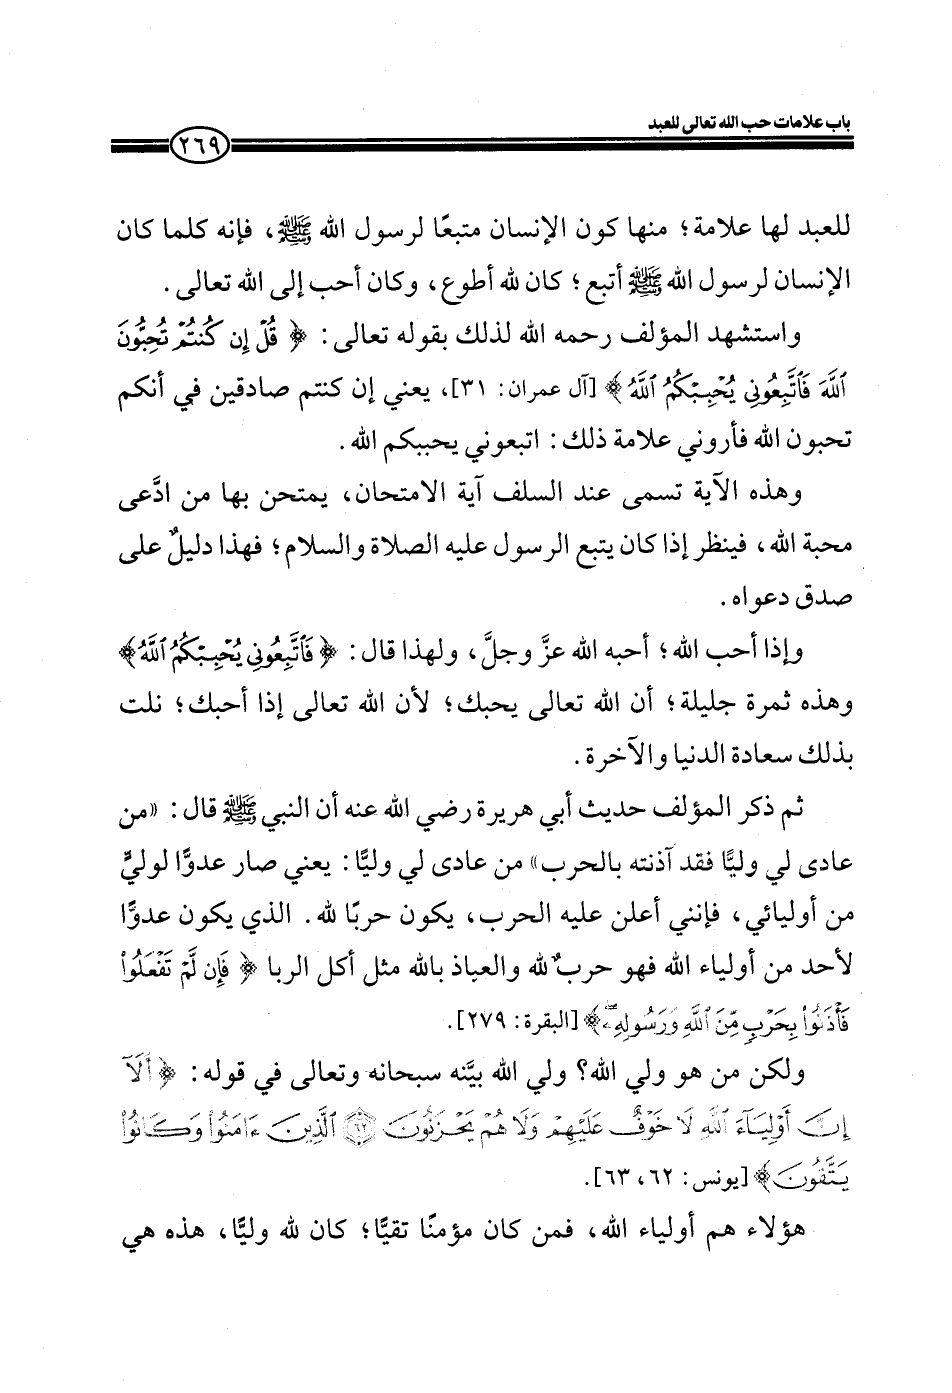 باب علامات حب الله تعالى للعبد
٢٦٩
للعبد لها علامة؛ منها كون الإنسان متبعًا لرسول الله ﷺ، فإنه كلما كان
الإنسان لرسول الله ﷺ أتبع؛ كان لله أطوع، وكان أحب إلى الله تعالى.
واستشهد المؤلف رحمه الله لذلك بقوله تعالى: ﴿ قُلْ إِن كُنتُمْ تُحِبُّونَ
ٱللَّهَ فَٱتَّبِعُونِي يُحْبِبْكُمُ ٱللَّهُ ﴾ [آل عمران: ٣١]، يعني إن كنتم صادقين في أنكم
تحبون الله فأروني علامة ذلك: اتبعوني يحببكم الله.
وهذه الآية تسمى عند السلف آية الامتحان، يمتحن بها من ادَّعى
محبة الله، فينظر إذا كان يتبع الرسول عليه الصلاة والسلام؛ فهذا دليلٌ على
صدق دعواه.
وإذا أحب الله؛ أحبه الله عزَّ وجلَّ، ولهذا قال: ﴿ فَٱتَّبِعُونِي يُحْبِبْكُمُ ٱللَّهُ ﴾
وهذه ثمرة جليلة؛ أن الله تعالى يحبك؛ لأن الله تعالى إذا أحبك؛ نلت
بذلك سعادة الدنيا والآخرة.
ثم ذكر المؤلف حديث أبي هريرة رضي الله عنه أن النبي ﷺ قال: «من
عادى لي وليًّا فقد آذنته بالحرب» من عادى لي وليًّا: يعني صار عدوًّا لوليٍّ
من أوليائي، فإنني أعلن عليه الحرب، يكون حربًا لله. الذي يكون عدوًّا
لأحد من أولياء الله فهو حربٌ لله والعياذ بالله مثل أكل الربا ﴿ فَإِن لَّمْ تَفْعَلُوا۟
فَأْذَنُوا۟ بِحَرْبٍ مِّنَ ٱللَّهِ وَرَسُولِهِۦ ﴾ [البقرة: ٢٧٩].
ولكن من هو ولي الله؟ ولي الله بيَّنه سبحانه وتعالى في قوله: ﴿ أَلَآ
إِنَّ أَوْلِيَآءَ ٱللَّهِ لَا خَوْفٌ عَلَيْهِمْ وَلَا هُمْ يَحْزَنُونَ ۝٦٢ ٱلَّذِينَ ءَامَنُوا۟ وَكَانُوا۟
يَتَّقُونَ ﴾ [يونس: ٦٢، ٦٣].
هؤلاء هم أولياء الله، فمن كان مؤمنًا تقيًّا؛ كان لله وليًّا، هذه هي